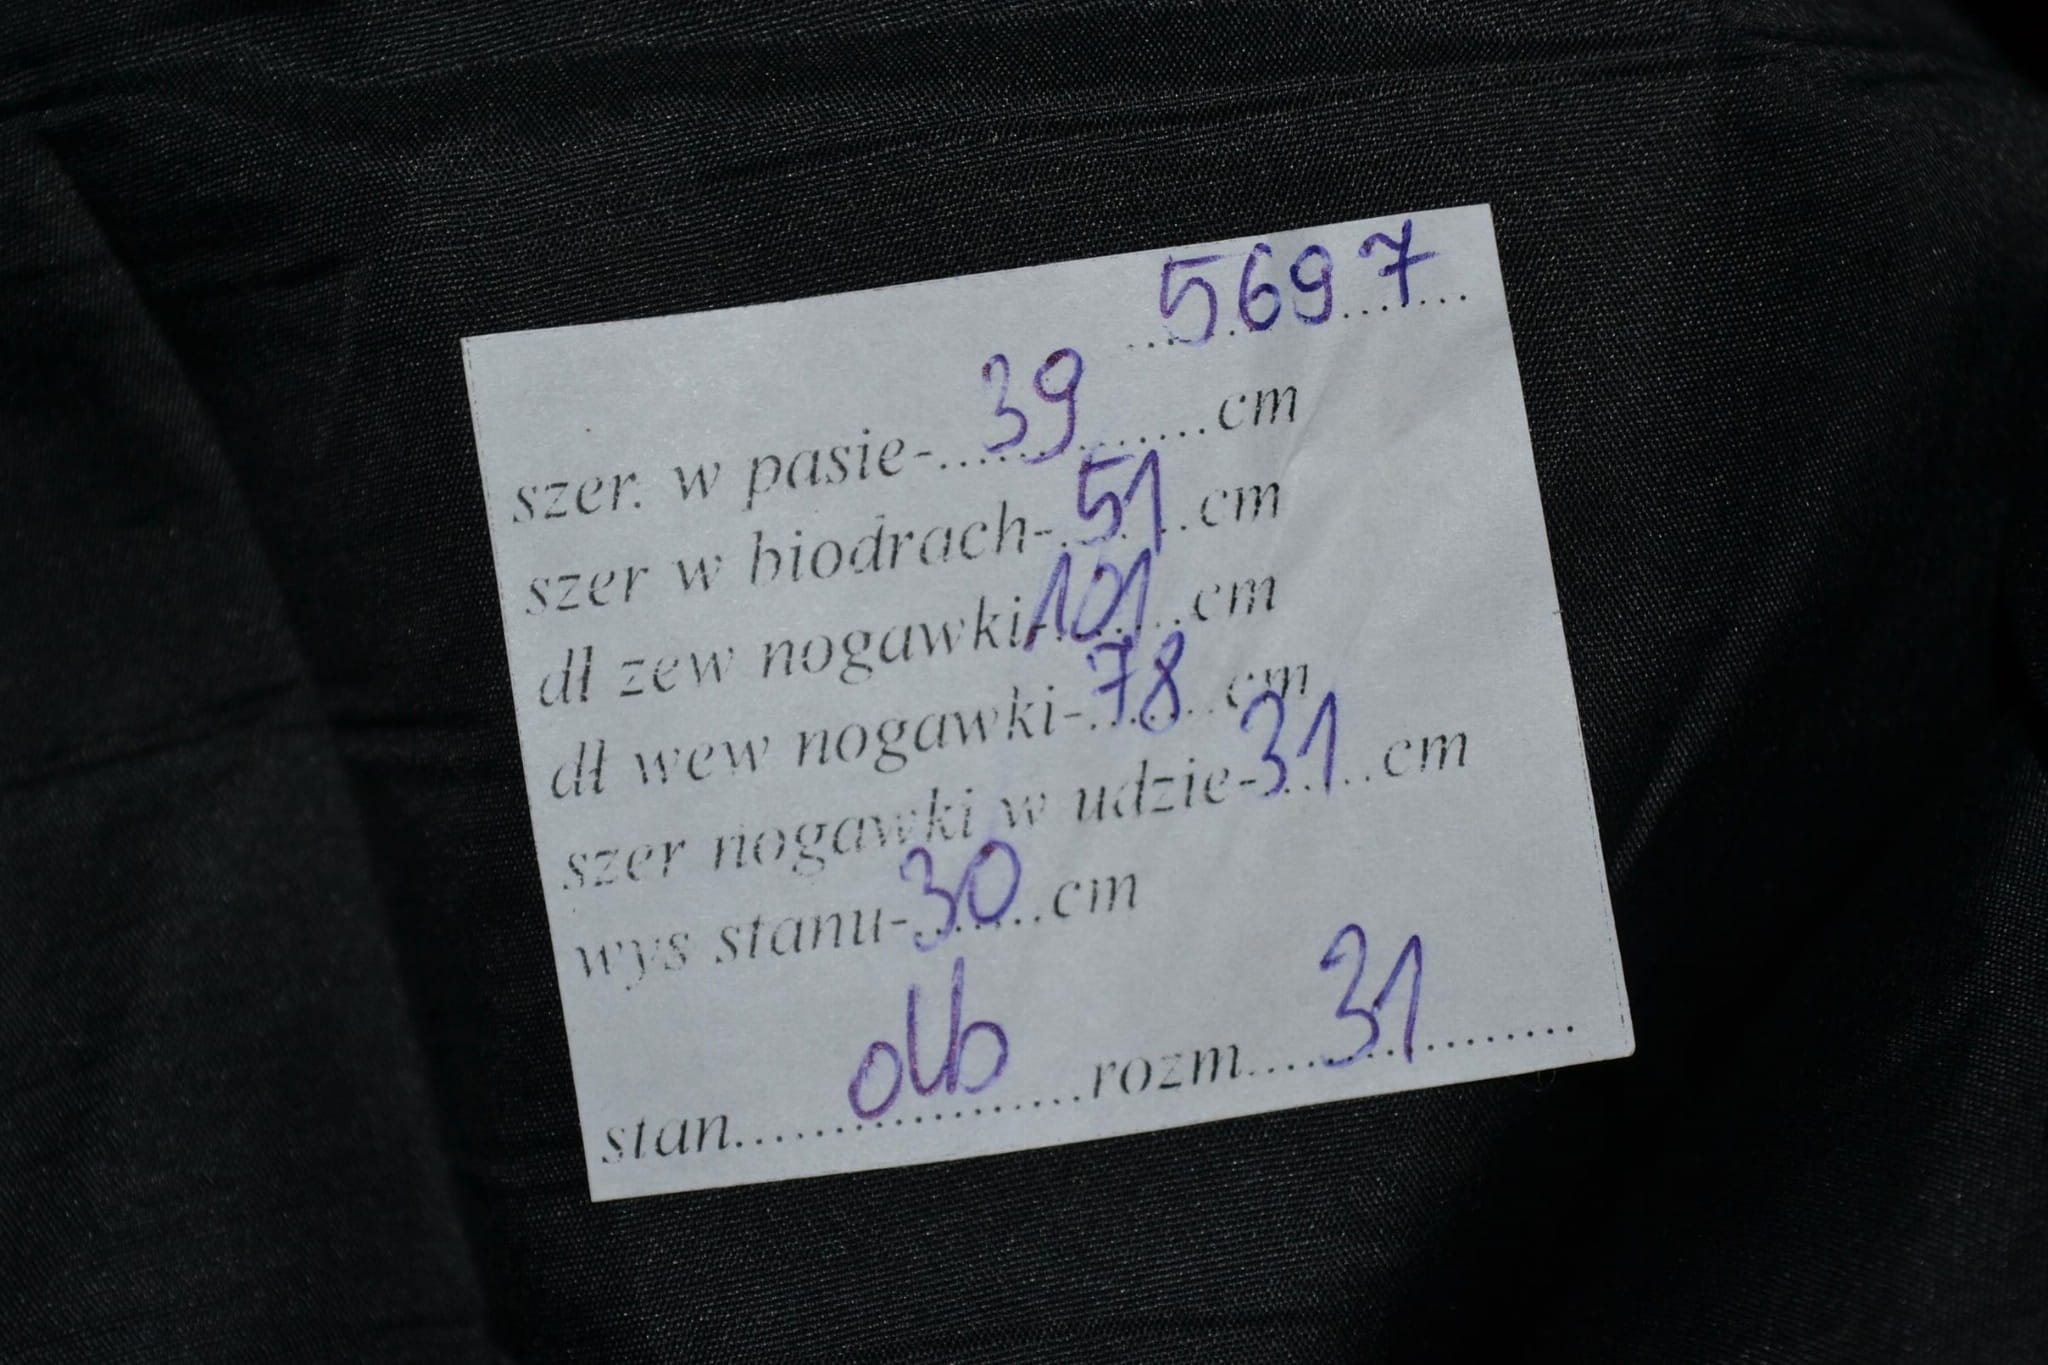 5697
szer. w pasie-39cm
szer w biodrach-51cm
dł zew nogawki-101cm
dł wew nogawki-78cm
szer nogawki w udzie-31cm
wys stanu-30cm
stan.....db.....rozm....31.....